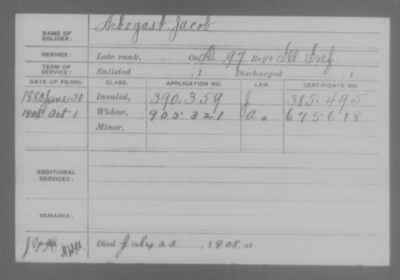 NAME OF SOLDIER: Arbogast Jacob
SERVICE: Late rank, Co. D, 97 Reg't Ill Inf
TERM OF SERVICE: Enlisted , 1 Discharged , 1
DATE OF FILING. CLASS. APPLICATION NO. LAW. CERTIFICATE NO.
1880 June 30 Invalid, 390.359 385.495
1908 Oct 1 Widow, 905321 675618
Minor,
ADDITIONAL SERVICES:
REMARKS:
Died July 22, 1908, at